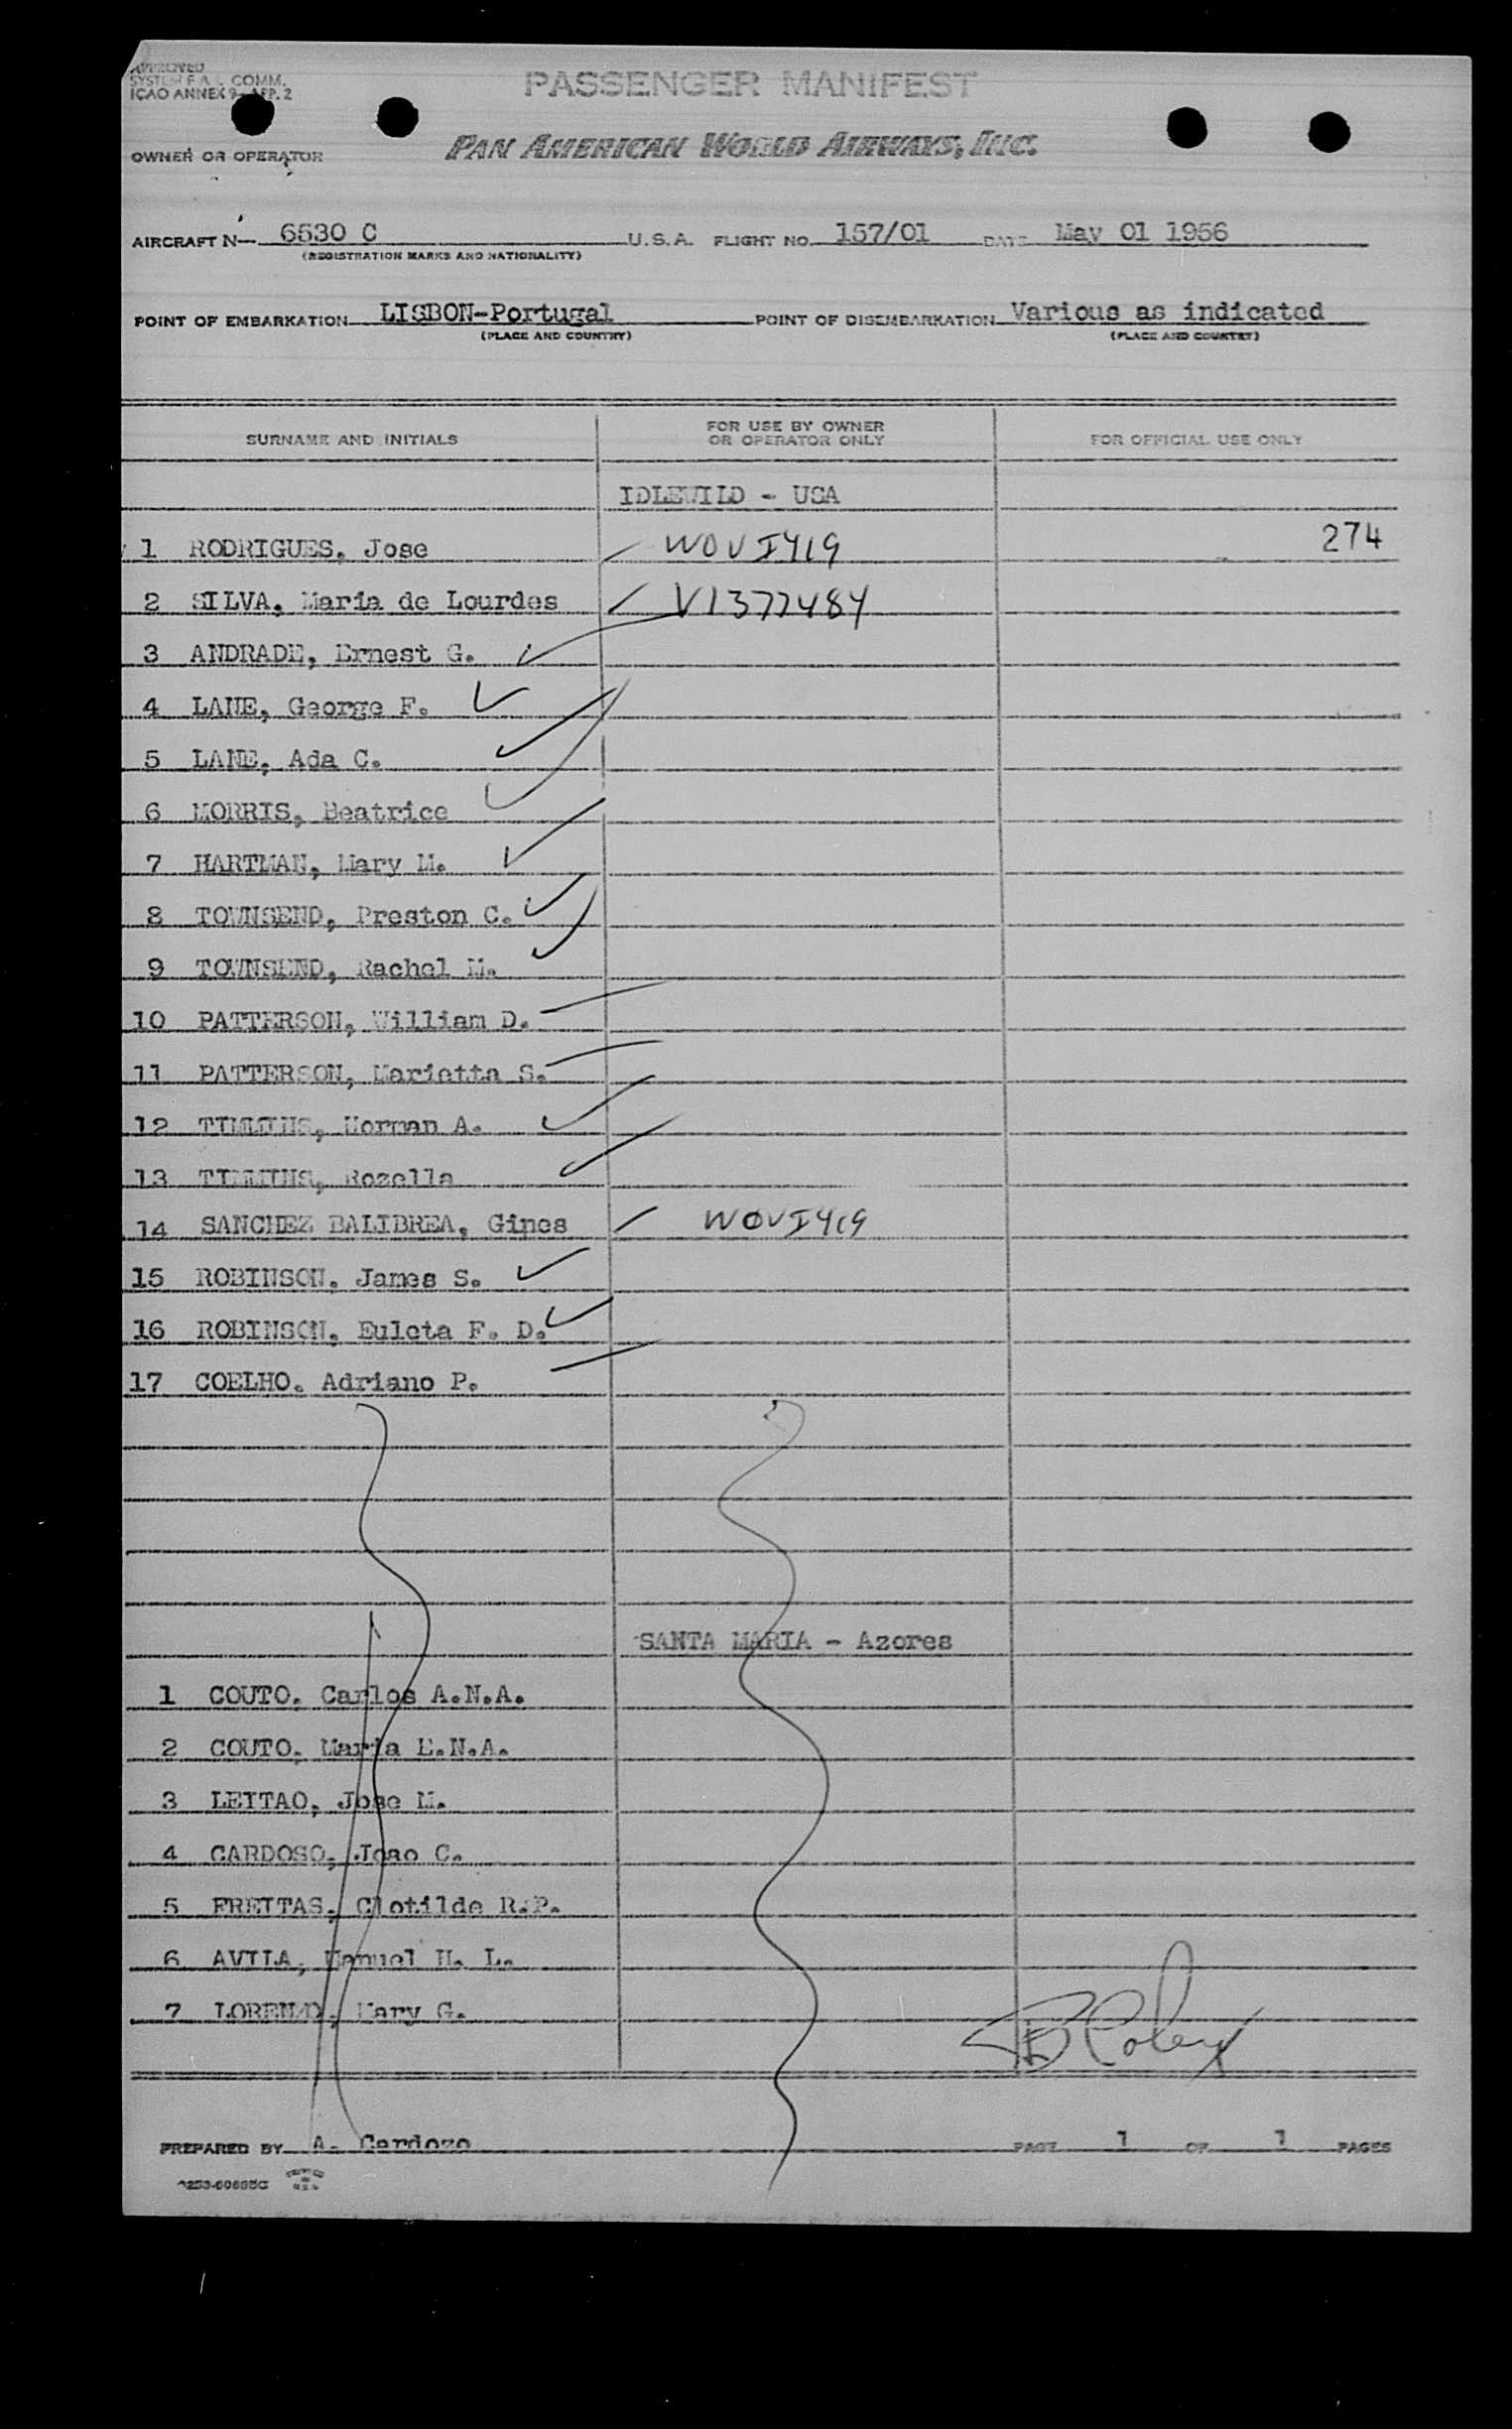 APPROVED
SYSTEM F.A.L. COMM.
ICAO ANNEX 9-APP. 2
PASSENGER MANIFEST
OWNER OR OPERATOR PAN AMERICAN WORLD AIRWAYS, INC.
AIRCRAFT N— 6530 C U.S.A. FLIGHT NO. 157/01 DATE May 01 1956
(REGISTRATION MARKS AND NATIONALITY)
POINT OF EMBARKATION LISBON-Portugal POINT OF DISEMBARKATION Various as indicated
(PLACE AND COUNTRY) (PLACE AND COUNTRY)
SURNAME AND INITIALS FOR USE BY OWNER OR OPERATOR ONLY FOR OFFICIAL USE ONLY
IDLEWILD - USA
1 RODRIGUES, Jose WOVI419 274
2 SILVA, Maria de Lourdes V1377484
3 ANDRADE, Ernest G.
4 LANE, George F.
5 LANE, Ada C.
6 MORRIS, Beatrice
7 HARTMAN, Mary M.
8 TOWNSEND, Preston C.
9 TOWNSEND, Rachel M.
10 PATTERSON, William D.
11 PATTERSON, Marietta S.
12 TIMMINS, Norman A.
13 TIMMINS, Rozella
14 SANCHEZ BALIBREA, Gines WOVI419
15 ROBINSON. James S.
16 ROBINSON. Euleta F. D.
17 COELHO. Adriano P.
SANTA MARIA - Azores
1 COUTO. Carlos A.N.A.
2 COUTO. Maria E.N.A.
3 LEITAO, Jose M.
4 CARDOSO, Joao C.
5 FREITAS, Clotilde R.P.
6 AVILA, Manuel H. L.
7 LORENZO, Mary G.
PREPARED BY A. Cardozo PAGE 1 OF 1 PAGES